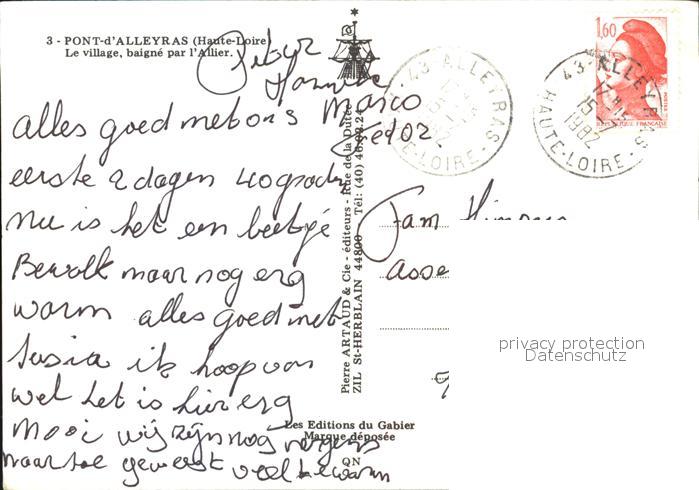 3 - PONT-d'ALLEYRAS (Haute-Loire)
Le village, baigné par l'Allier.
Petur
Hannie
Marco
alles goed met ons
eerste 2 dagen 40 graden
nu is het een beetje
Bewolk maar nog erg
warm alles goed met
ik hoop van
wel het is hier erg
mooi wij zijn nog nergens
naar toe geweest veel te warm
Pierre ARTAUD & Cie - éditeurs - Rue de la Dutée
ZIL St-HERBLAIN 44800 Tél: (40) 46.02.24
Les Editions du Gabier
Marque déposée
QN
43-ALLEYRAS
HAUTE-LOIRE
43-ALLEYRAS
17H15
15
1982
HAUTE-LOIRE
1,60
REPUBLIQUE FRANCAISE
POSTES
Fam
Asse
privacy protection
Datenschutz